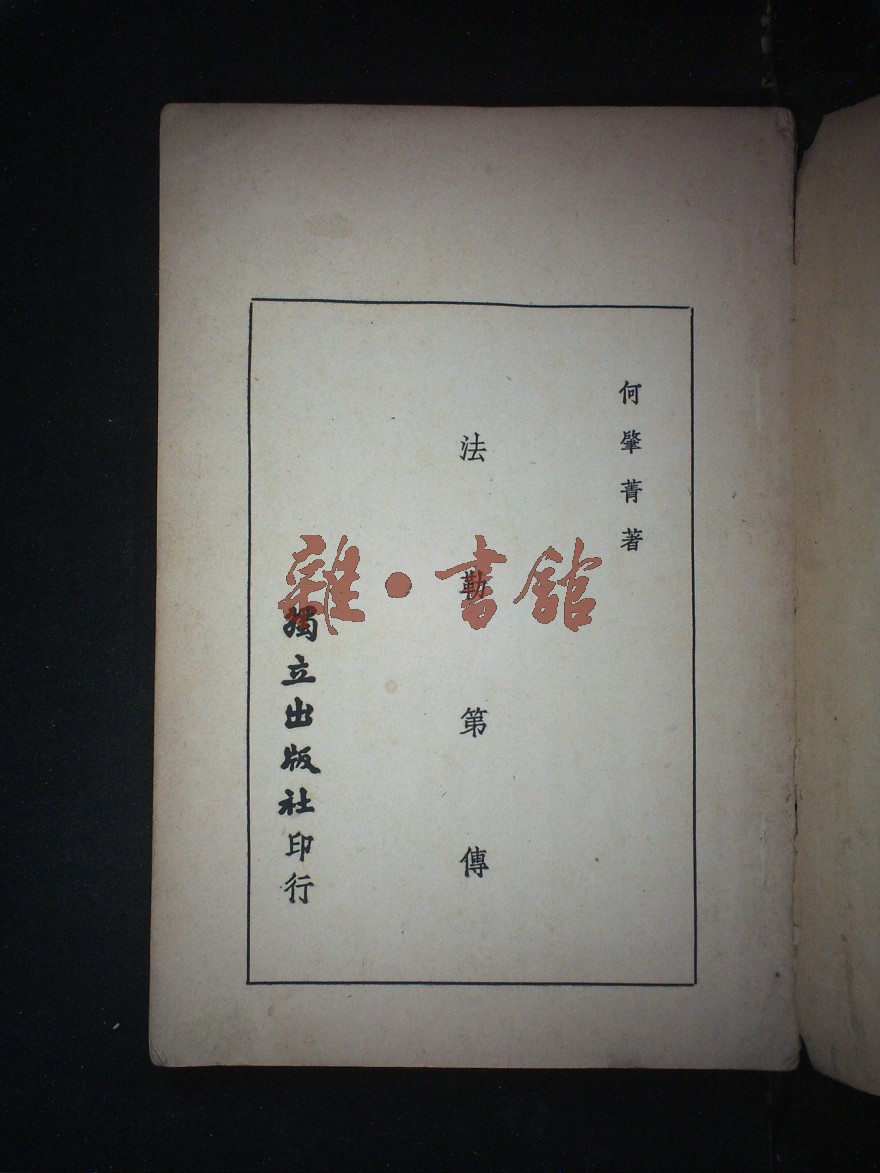 何肇菁著
法勒第傳
獨立出版社印行
雜·書館